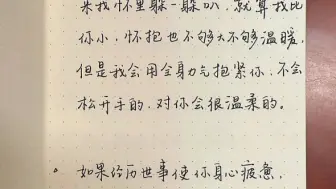 来我怀里躲一躲叭,就算我比
你小,怀抱也不够大不够温暖,
但是我会用全身力气抱紧你,不会
松开手的,对你会很温柔的。
。如果经历世事使你身心疲惫,